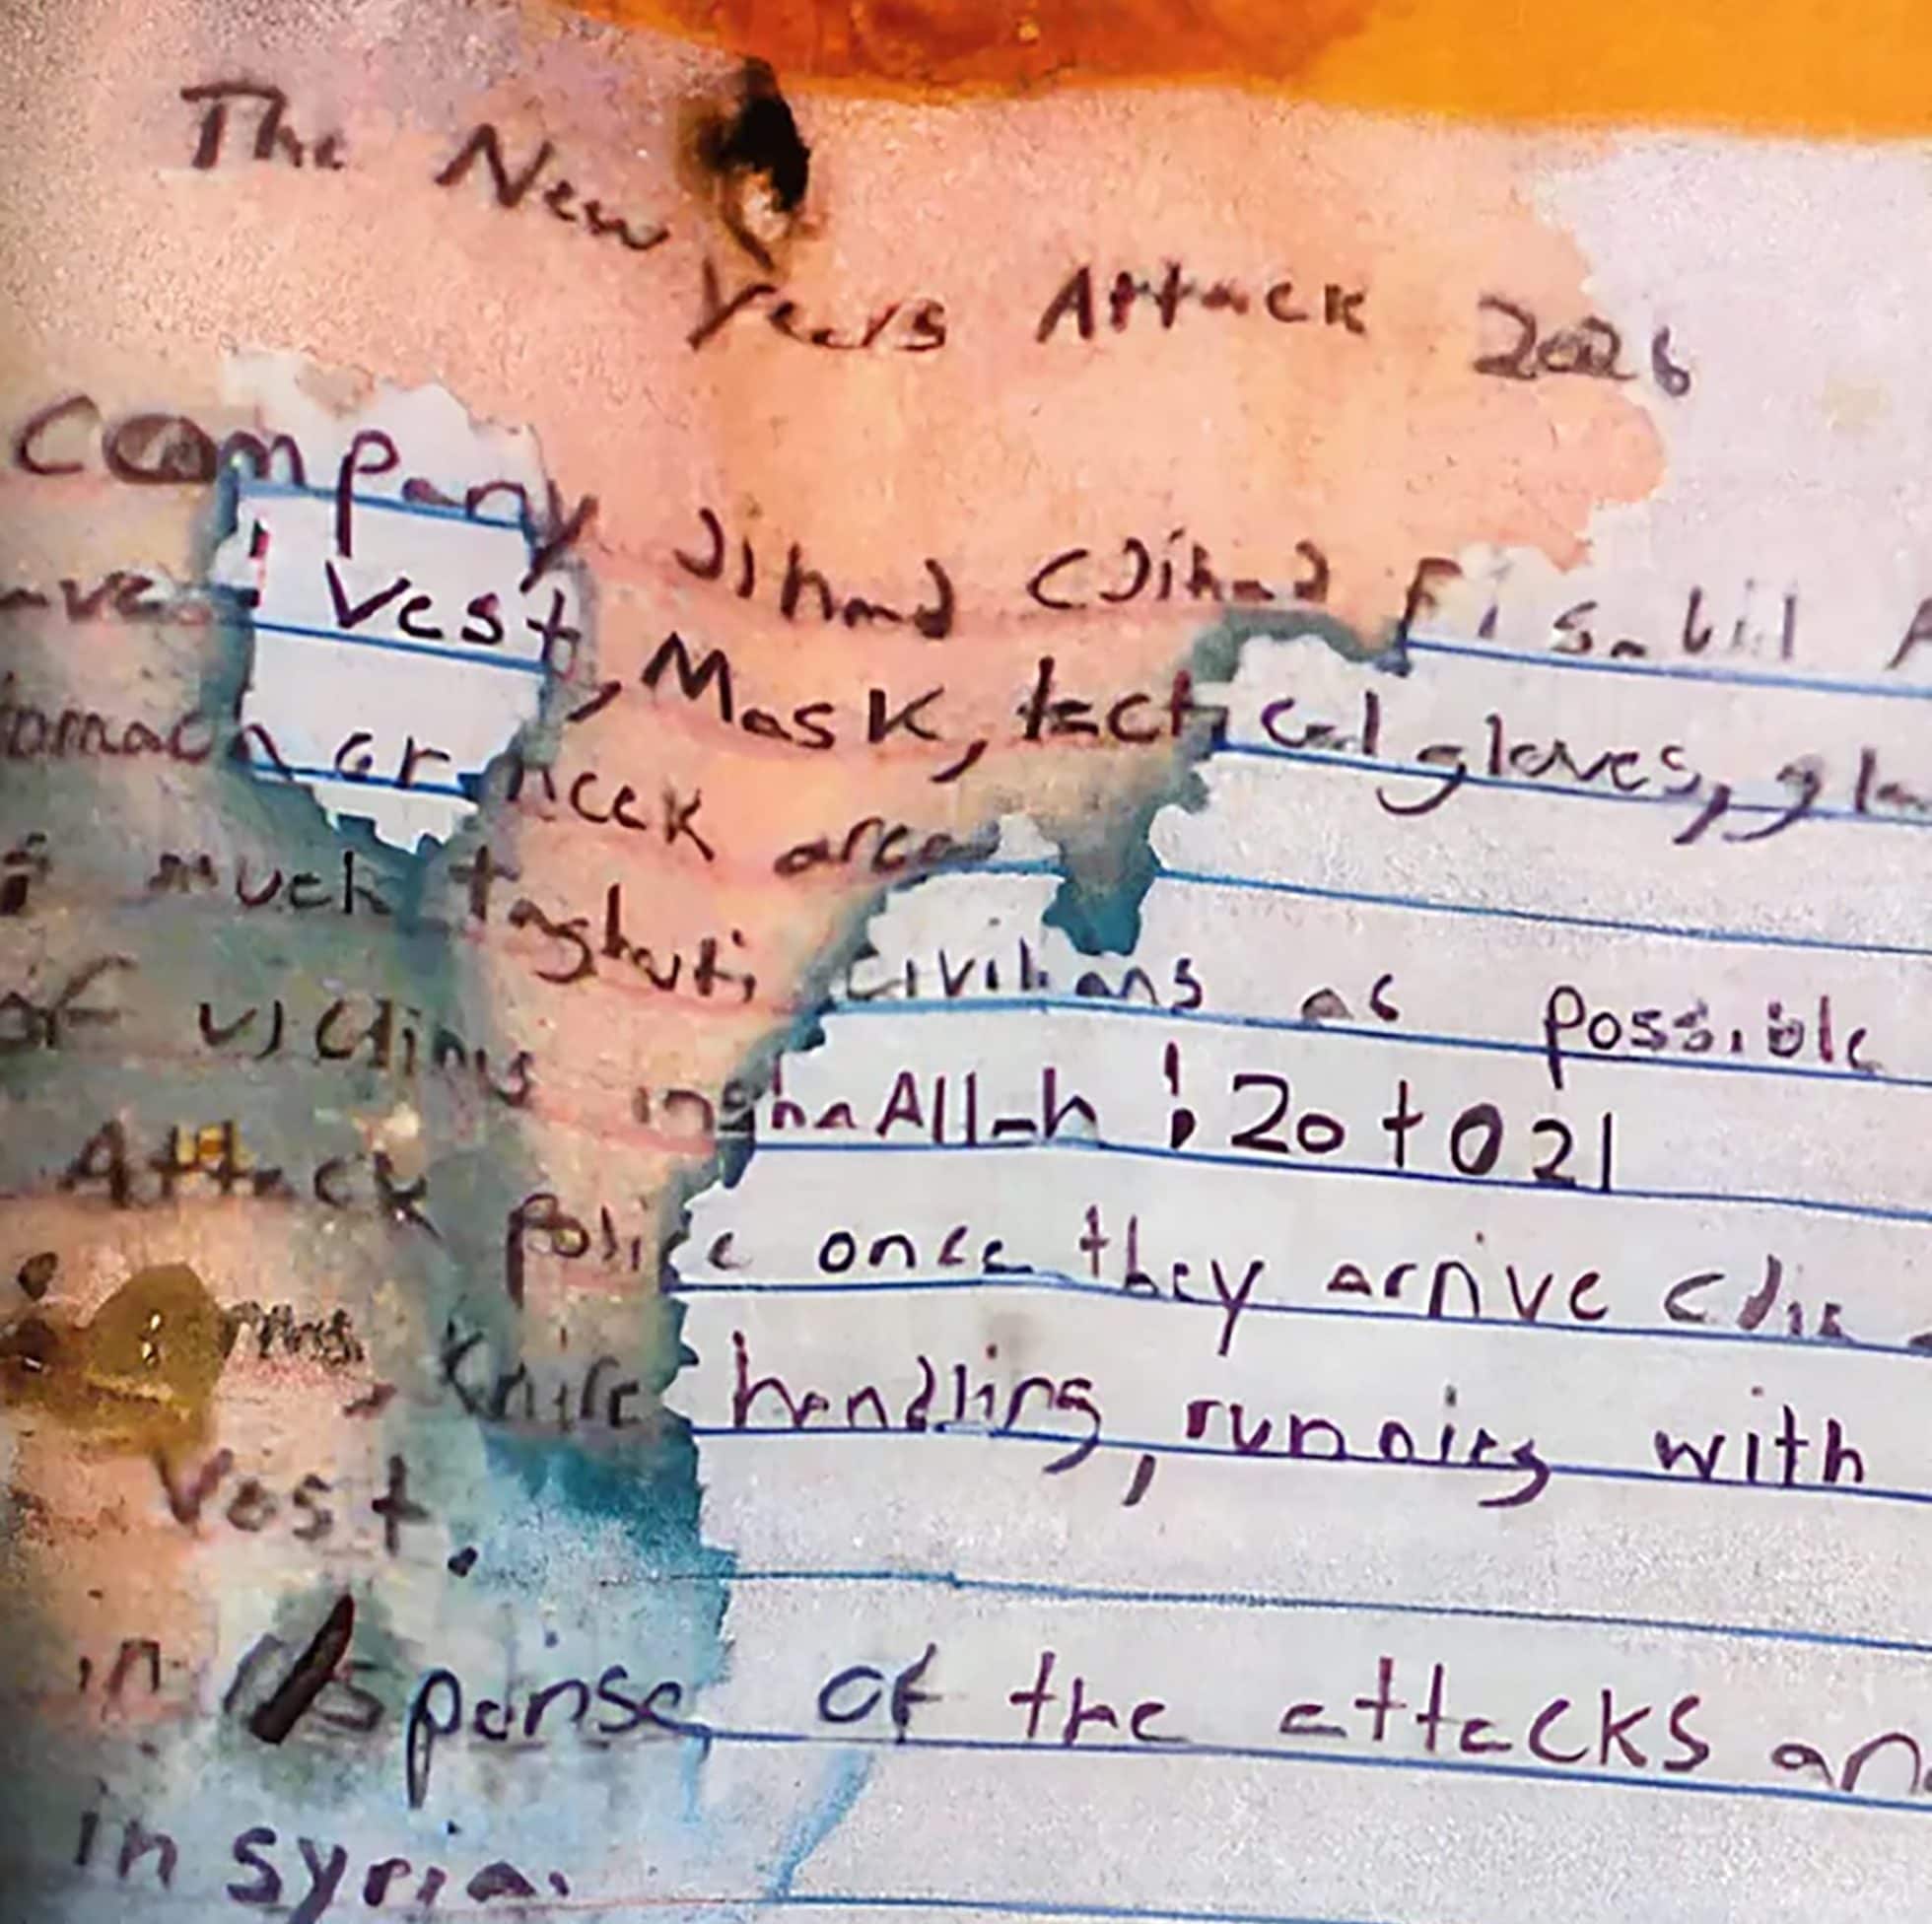 The New Years Attack 2026
Company Jihad (Jihad Fi sabil
Vest, Mask, tactical gloves,
or neck area
much taghuti civilians as possible
of victims inshaAllah: 20 to 21
Attack police once they arrive (die
Knife handling, running with
Vest.
in response of the attacks
in syria.